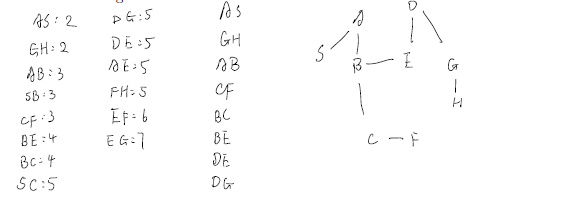 AS: 2
GH: 2
AB: 3
SB: 3
CF: 3
BE: 4
BC: 4
SC: 5
DG: 5
DE: 5
AE: 5
FH: 5
EF: 6
EG: 7
AS
GH
AB
CF
BC
BE
DE
DG
A D
S B E G
H
C F